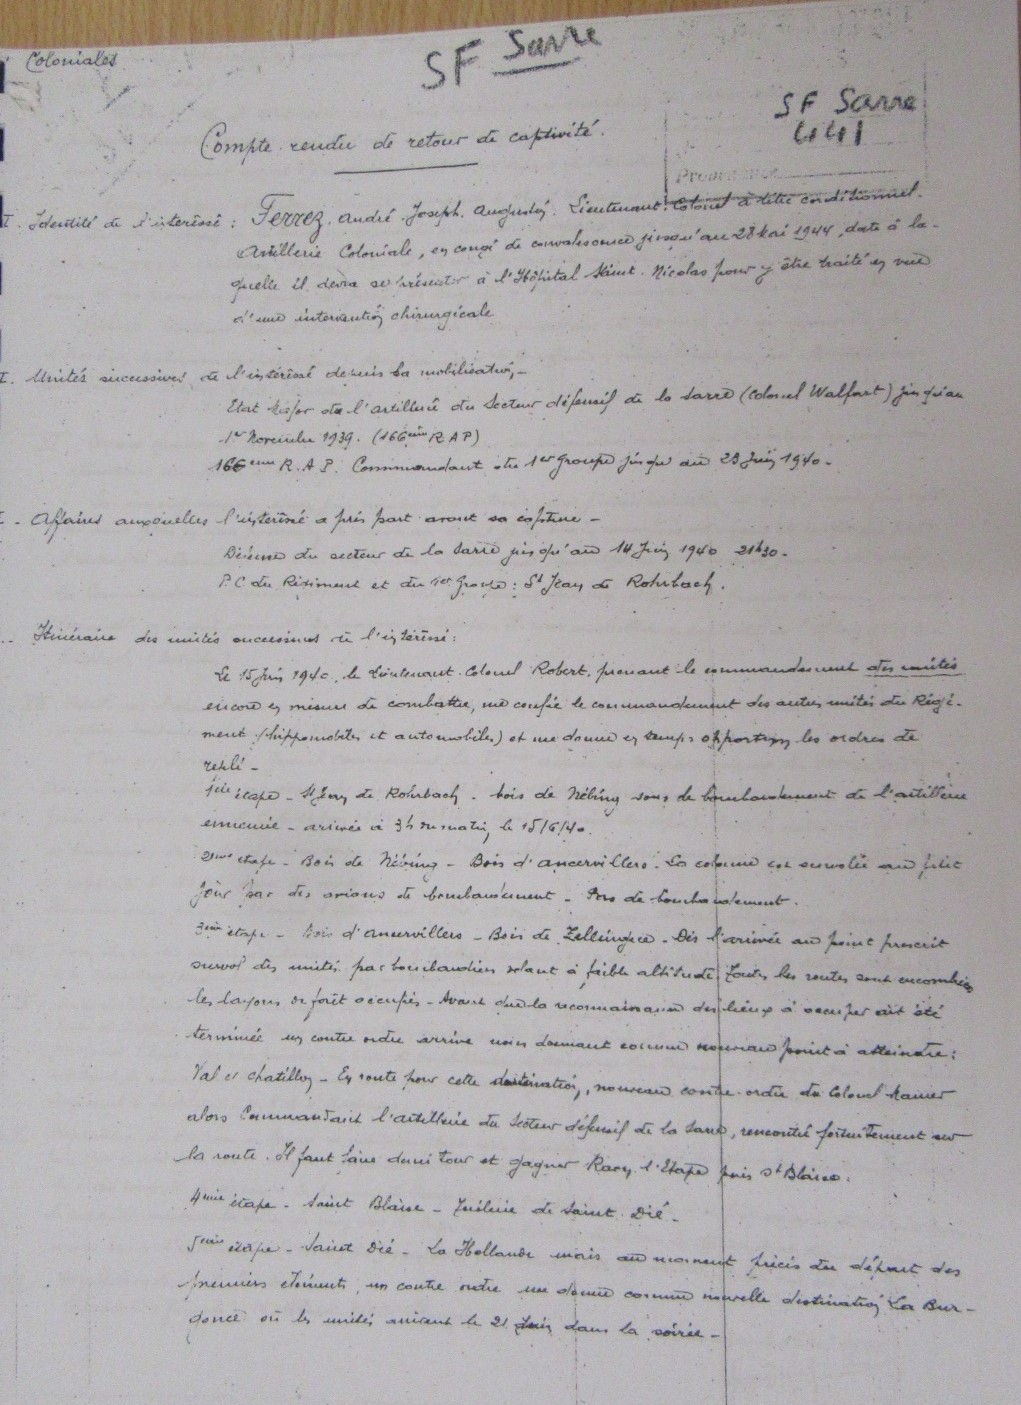 Coloniales
SF Sarre
SF Sarre
441
Compte rendu de retour de captivité.
Provenance
I. Identité de l'intéressé : Ferrez. André. Joseph. Augustin. Lieutenant. Colonel à titre conditionnel.
Artillerie Coloniale, en congé de convalescence jusqu'au 28 Mai 1944, date à la-
quelle il devra se présenter à l'Hôpital Saint. Nicolas pour y être traité en vue
d'une intervention chirurgicale
I. Unités successives de l'intéressé depuis la mobilisation,-
Etat Major de l'artillerie du Secteur défensif de la Sarre (Colonel Walfart) jusqu'au
1er Novembre 1939. (166ème R A P)
166ème R. A. P. Commandant du 1er Groupe jusqu'au 23 Juin 1940-
I - Affaires auxquelles l'intéressé a pris part avant sa capture -
Défense du secteur de la Sarre jusqu'au 14 Juin 1940 21h30-
P.C du Régiment et du 1er Groupe : St Jean de Rohrbach.
.. Itinéraire des unités successives de l'intéressé :
Le 15 Juin 1940, le Lieutenant. Colonel Robert. prenant le commandement des unités
encore en mesure de combattre, me confie le commandement des autres unités du Régi-
ment (hippomobiles et automobiles) et me donne en temps opportun les ordres de
repli -
1ère étape - St Jean de Rohrbach - bois de Nébing sous le bombardement de l'artillerie
ennemie - arrivée à 3h du matin, le 15/6/40.
2ème étape - Bois de Nébing - Bois d'Ancervillers. La colonne est survolée au petit
jour par des avions de bombardement - Pas de bombardement.
3ème étape - Bois d'Ancervillers - Bois de - Dès l'arrivée au point prescrit
survol des unités par bombardiers volant à faible altitude. Toutes les routes sont encombrées
les layons de forêt occupés - Avant que la reconnaissance des lieux à occuper ait été
terminée un contre ordre arrive nous donnant comme nouveau point à atteindre :
Val et Chatillon - En route pour cette destination, nouveau contre-ordre du Colonel
alors Commandant l'artillerie du Secteur défensif de la Sarre, rencontré fortuitement sur
la route. Il faut faire demi tour et gagner Raon l'Etape puis St Blaise.
4ème étape - Saint Blaise - de Saint. Dié -
5ème étape - Saint Dié - La Hollande mais au moment précis du départ des
premiers éléments, un contre ordre me donne comme nouvelle destination La Bur-
gonce où les unités arrivent le 21 Juin dans la soirée -